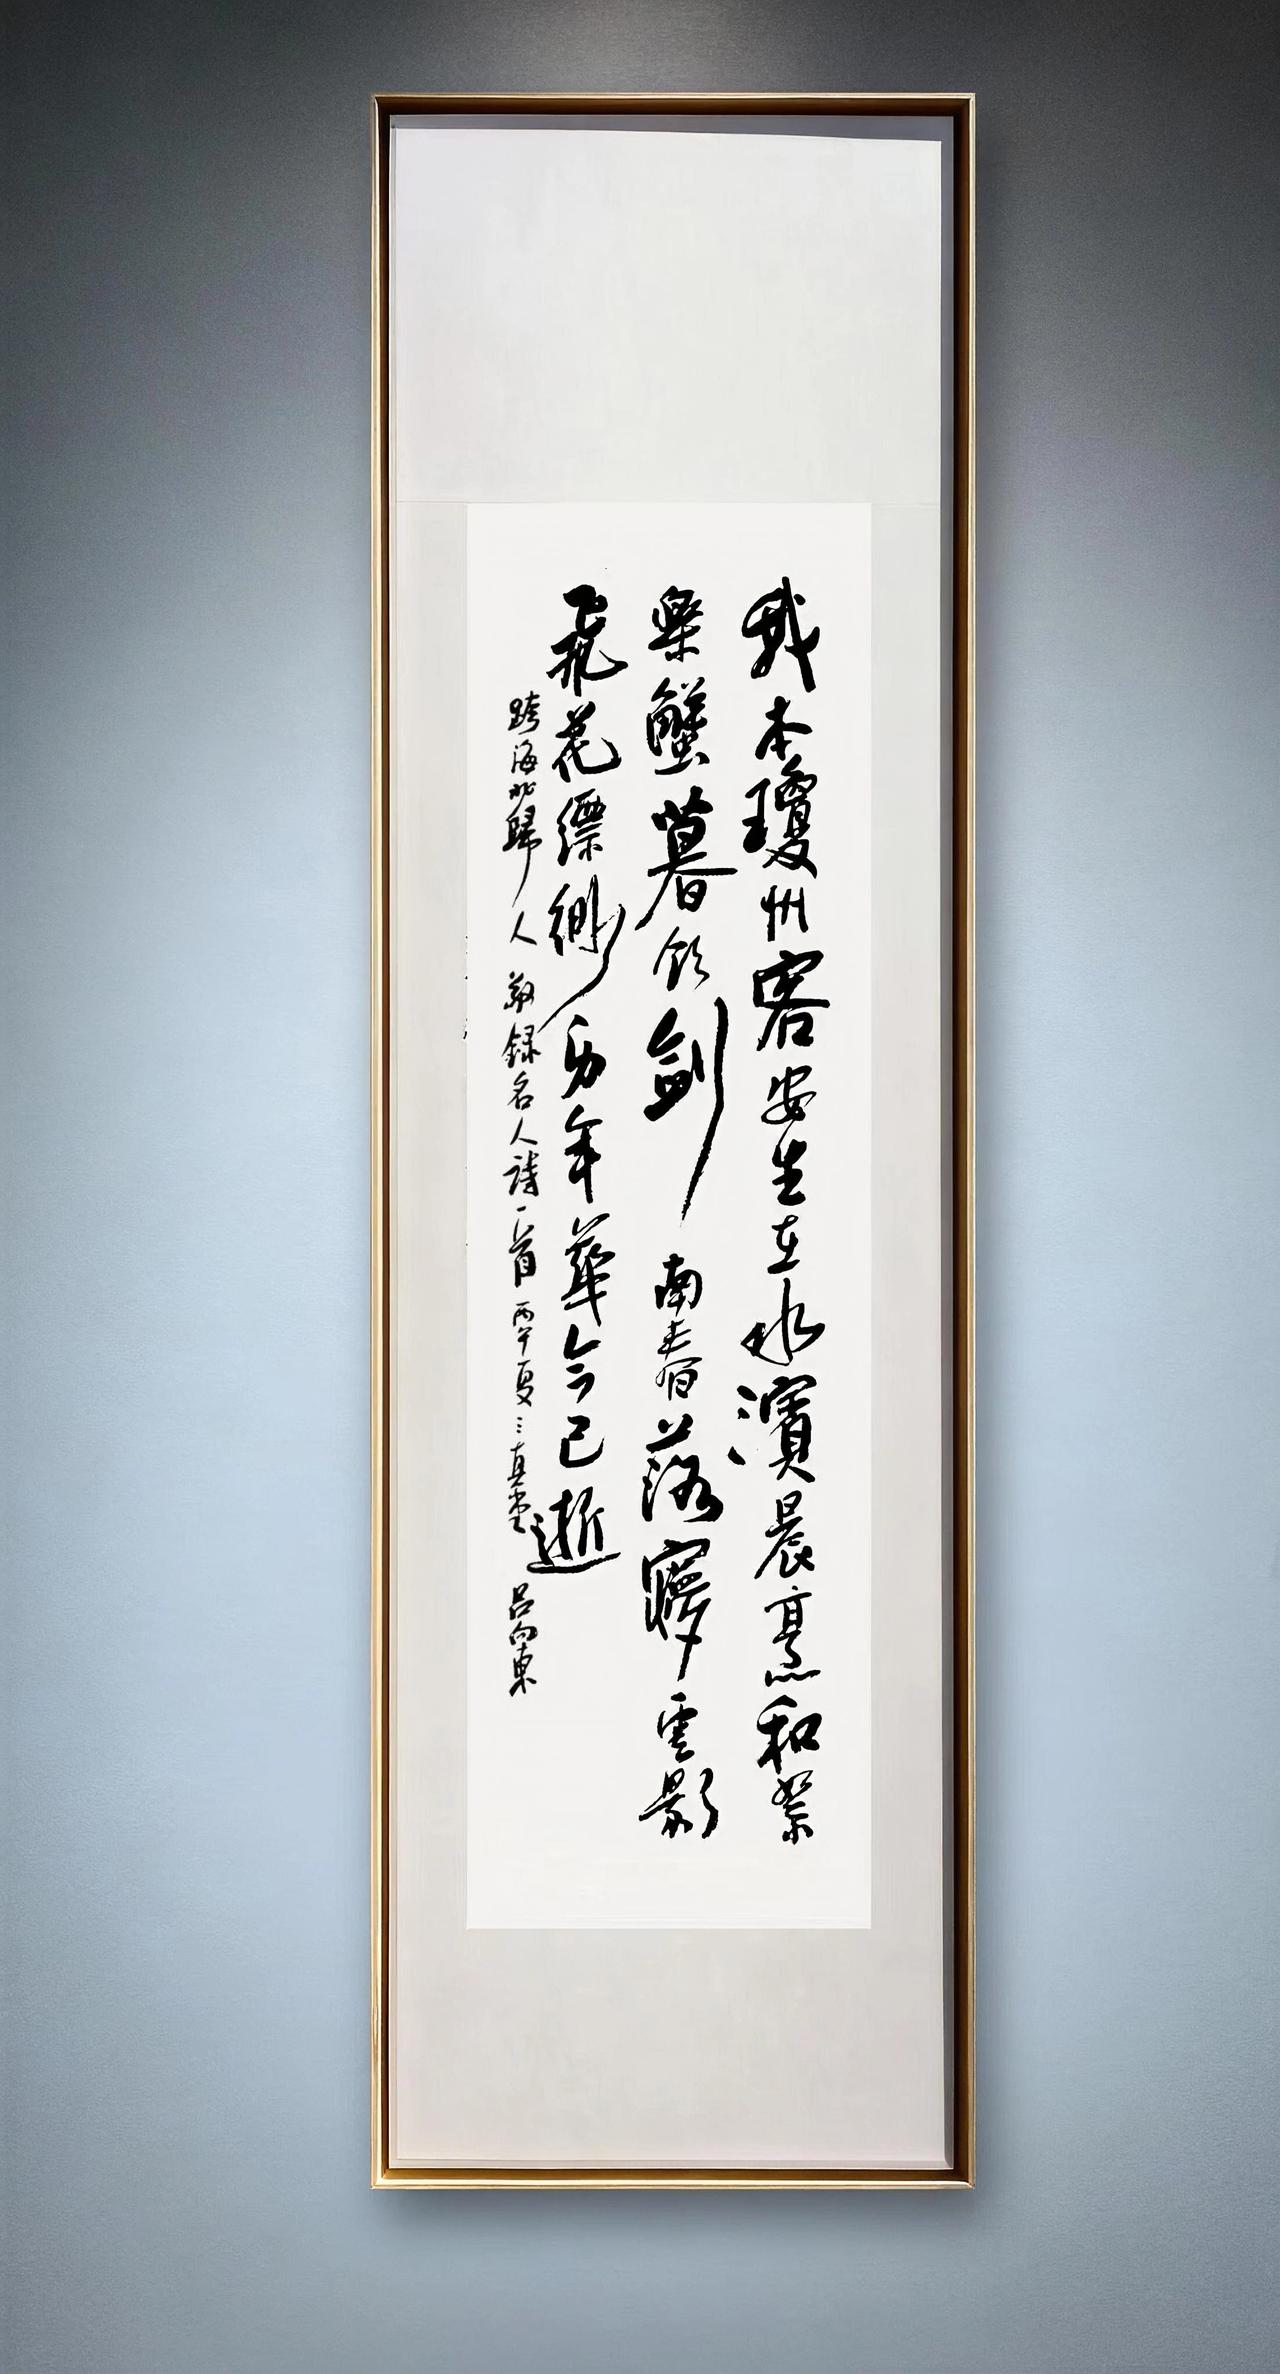 我本瓊州客安生在水濱晨烹和
樂蟹暮飲劍南春落雲影
飛花縹年華今已逝
跨海北歸人敬錄名人詩一首丙午夏三真堂呂向東